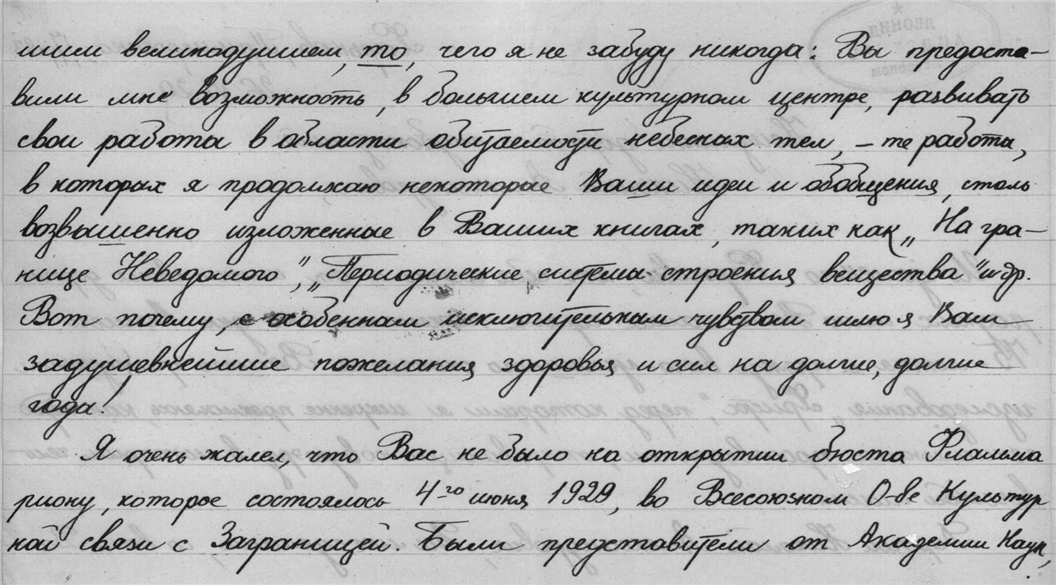 шим великодушием, то, чего я не забуду никогда: Вы предоста-
вили мне возможность, в большем культурном центре, развивать
свои работы в области обитаемости небесных тел, – те работы,
в которых я продолжаю некоторые Ваши идеи и обобщения, столь
возвышенно изложенные в Ваших книгах, таких как „На гра-
нице Неведомого", „Периодические системы строения вещества" и др.
Вот почему, с особенным исключительным чувством шлю я Вам
задушевнейшие пожелания здоровья и сил на долгие, долгие
года!
Я очень жалел, что Вас не было на открытии бюста Фламма
риону, которое состоялось 4го июня 1929, во Всесоюзном О-ве Культур
ной связи с Заграницей. Были представители от Академии Наук,